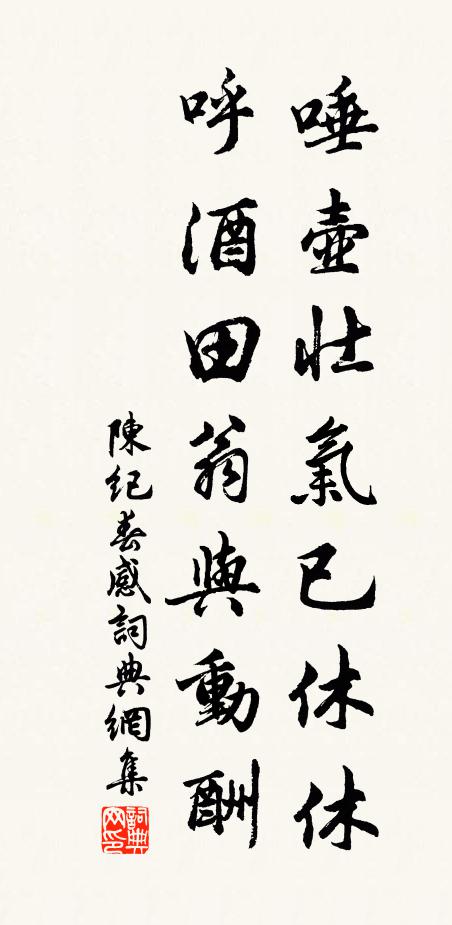 唾壺壯氣已休休
呼酒田翁與動酬
陳紀春感詞典網集
詞典网印